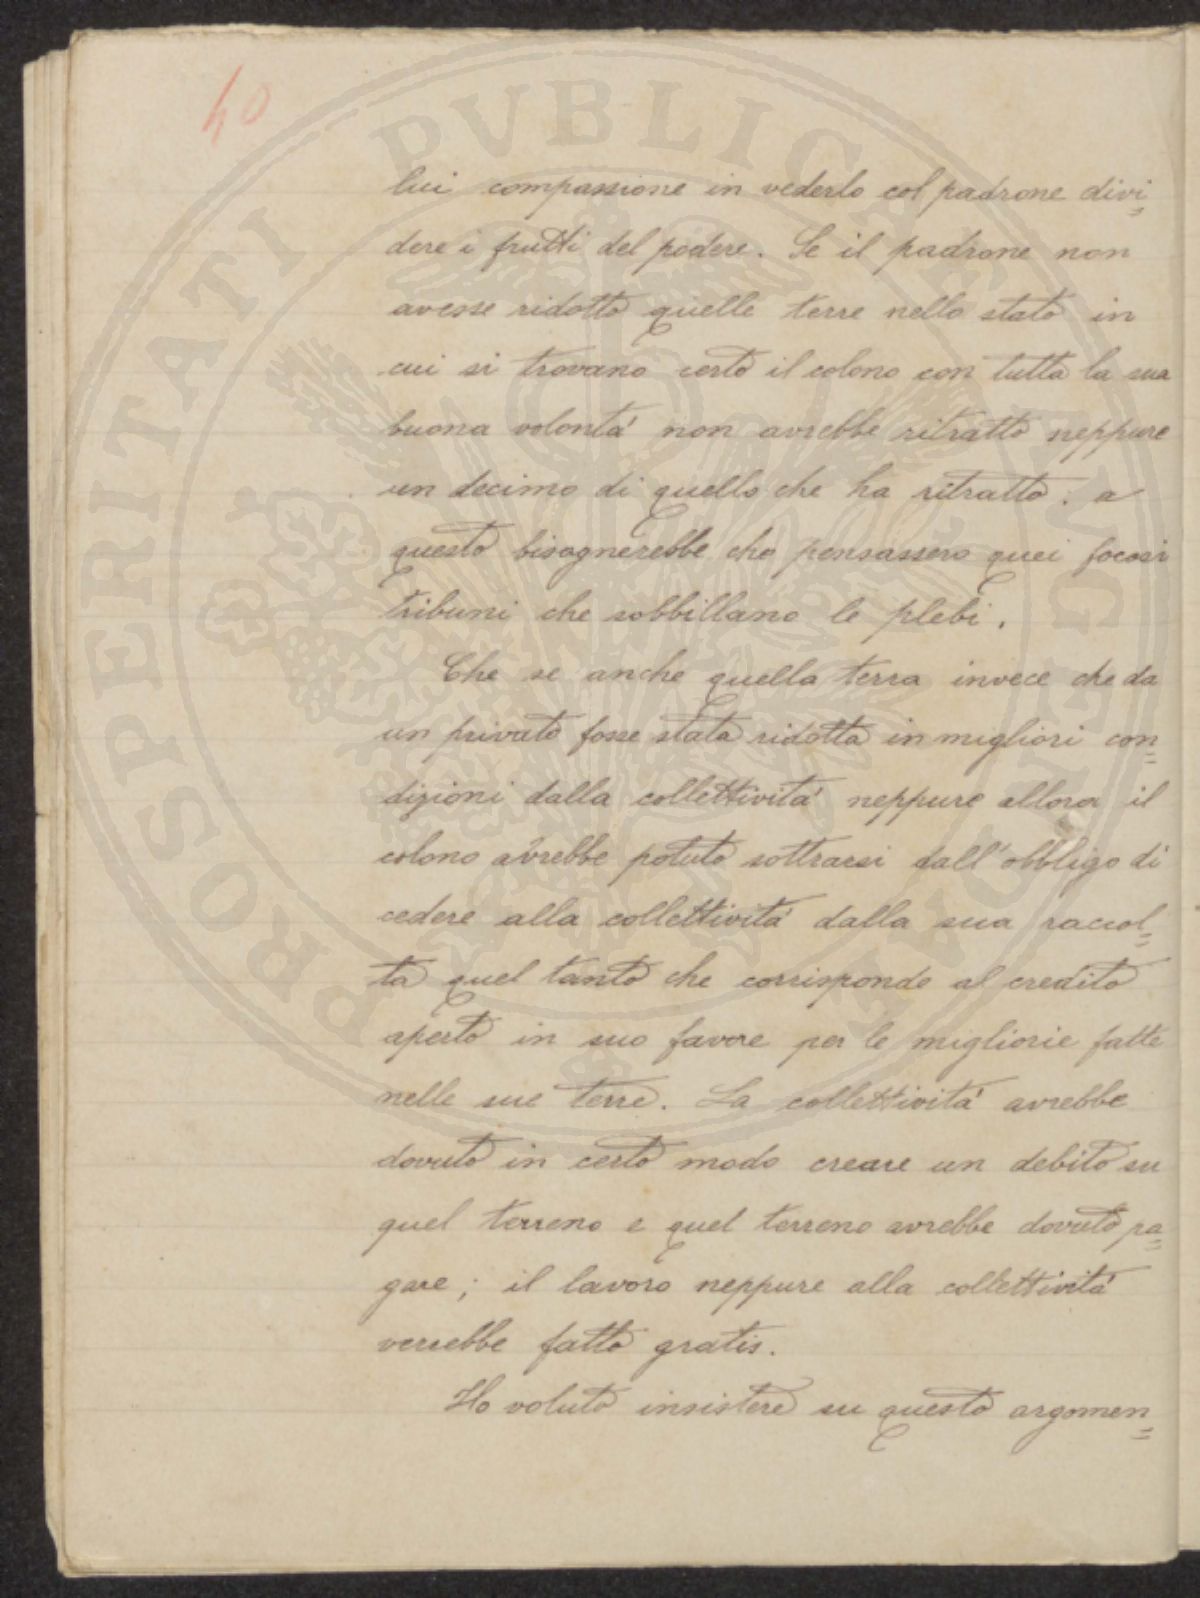 40
lui compassione in vederlo col padrone divi=
dere i frutti del podere. Se il padrone non
avesse ridotto quelle terre nello stato in
cui si trovano certo il colono con tutta la sua
buona volontà non avrebbe ritratto neppure
un decimo di quello che ha ritratto: a
questo bisognerebbe che pensassero quei focosi
tribuni che sobbillano le plebi.
Che se anche quella terra invece che da
un privato fosse stata ridotta in migliori con=
dizioni dalla collettività neppure allora il
colono avrebbe potuto sottrarsi dall'obbligo di
cedere alla collettività dalla sua raccol=
ta quel tanto che corrisponde al credito
aperto in suo favore per le migliorie fatte
nelle sue terre. La collettività avrebbe
dovuto in certo modo creare un debito su
quel terreno e quel terreno avrebbe dovuto pa=
gare; il lavoro neppure alla collettività
verrebbe fatto gratis.
Ho voluto insistere su questo argomen=
PROSPERITATI PUBLICAE